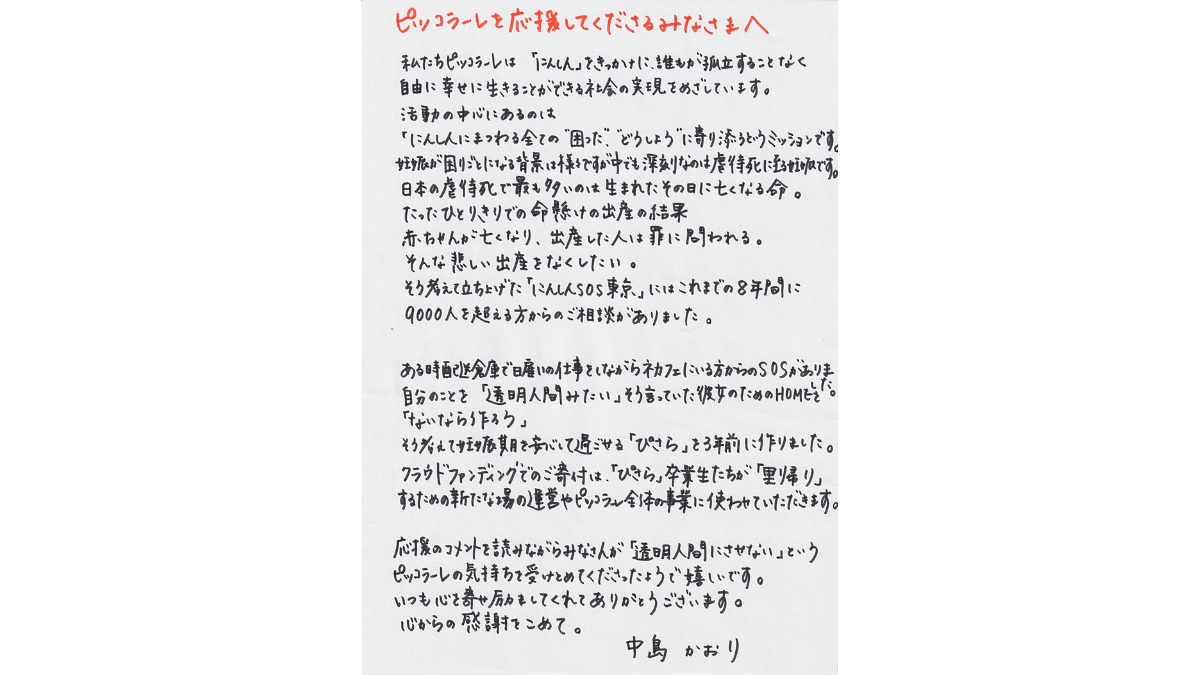 ピッコラーレを応援してくださるみなさまへ
私たちピッコラーレは「にんしん」をきっかけに、誰もが孤立することなく
自由に幸せに生きることができる社会の実現をめざしています。
活動の中心にあるのは
「にんしんにまつわる全ての"困った"、"どうしよう"に寄り添うどうミッションです。
妊娠が困りごとになる背景は様々ですが中でも深刻なのは虐待死に至る妊娠です。
日本の虐待死で最も多いのは生まれたその日に亡くなる命。
たったひとりきりでの命懸けの出産の結果
赤ちゃんが亡くなり、出産した人は罪に問われる。
そんな悲しい出産をなくしたい。
そう考えて立ち上げた「にんしんSOS東京」にはこれまでの8年間に
9000人を超える方からのご相談がありました。
ある時配送倉庫で日雇いの仕事をしながらネカフェにいる方からのSOSがありました。
自分のことを「透明人間みたい」そう言っていた彼女のためのHOMEを
「ないなら作ろう」
そう考えて妊娠期を安心して過ごせる「ぴさら」を3年前に作りました。
クラウドファンディングでのご寄付は、「ぴさら」卒業生たちが「里帰り」
するための新たな場の運営やピッコラーレ全体の事業に使わせていただきます。
応援のコメントを読みながらみなさんが「透明人間にさせない」という
ピッコラーレの気持ちを受けとめてくださったようで嬉しいです。
いつも心を寄せ励ましてくれてありがとうございます。
心からの感謝をこめて。
中島 かおり